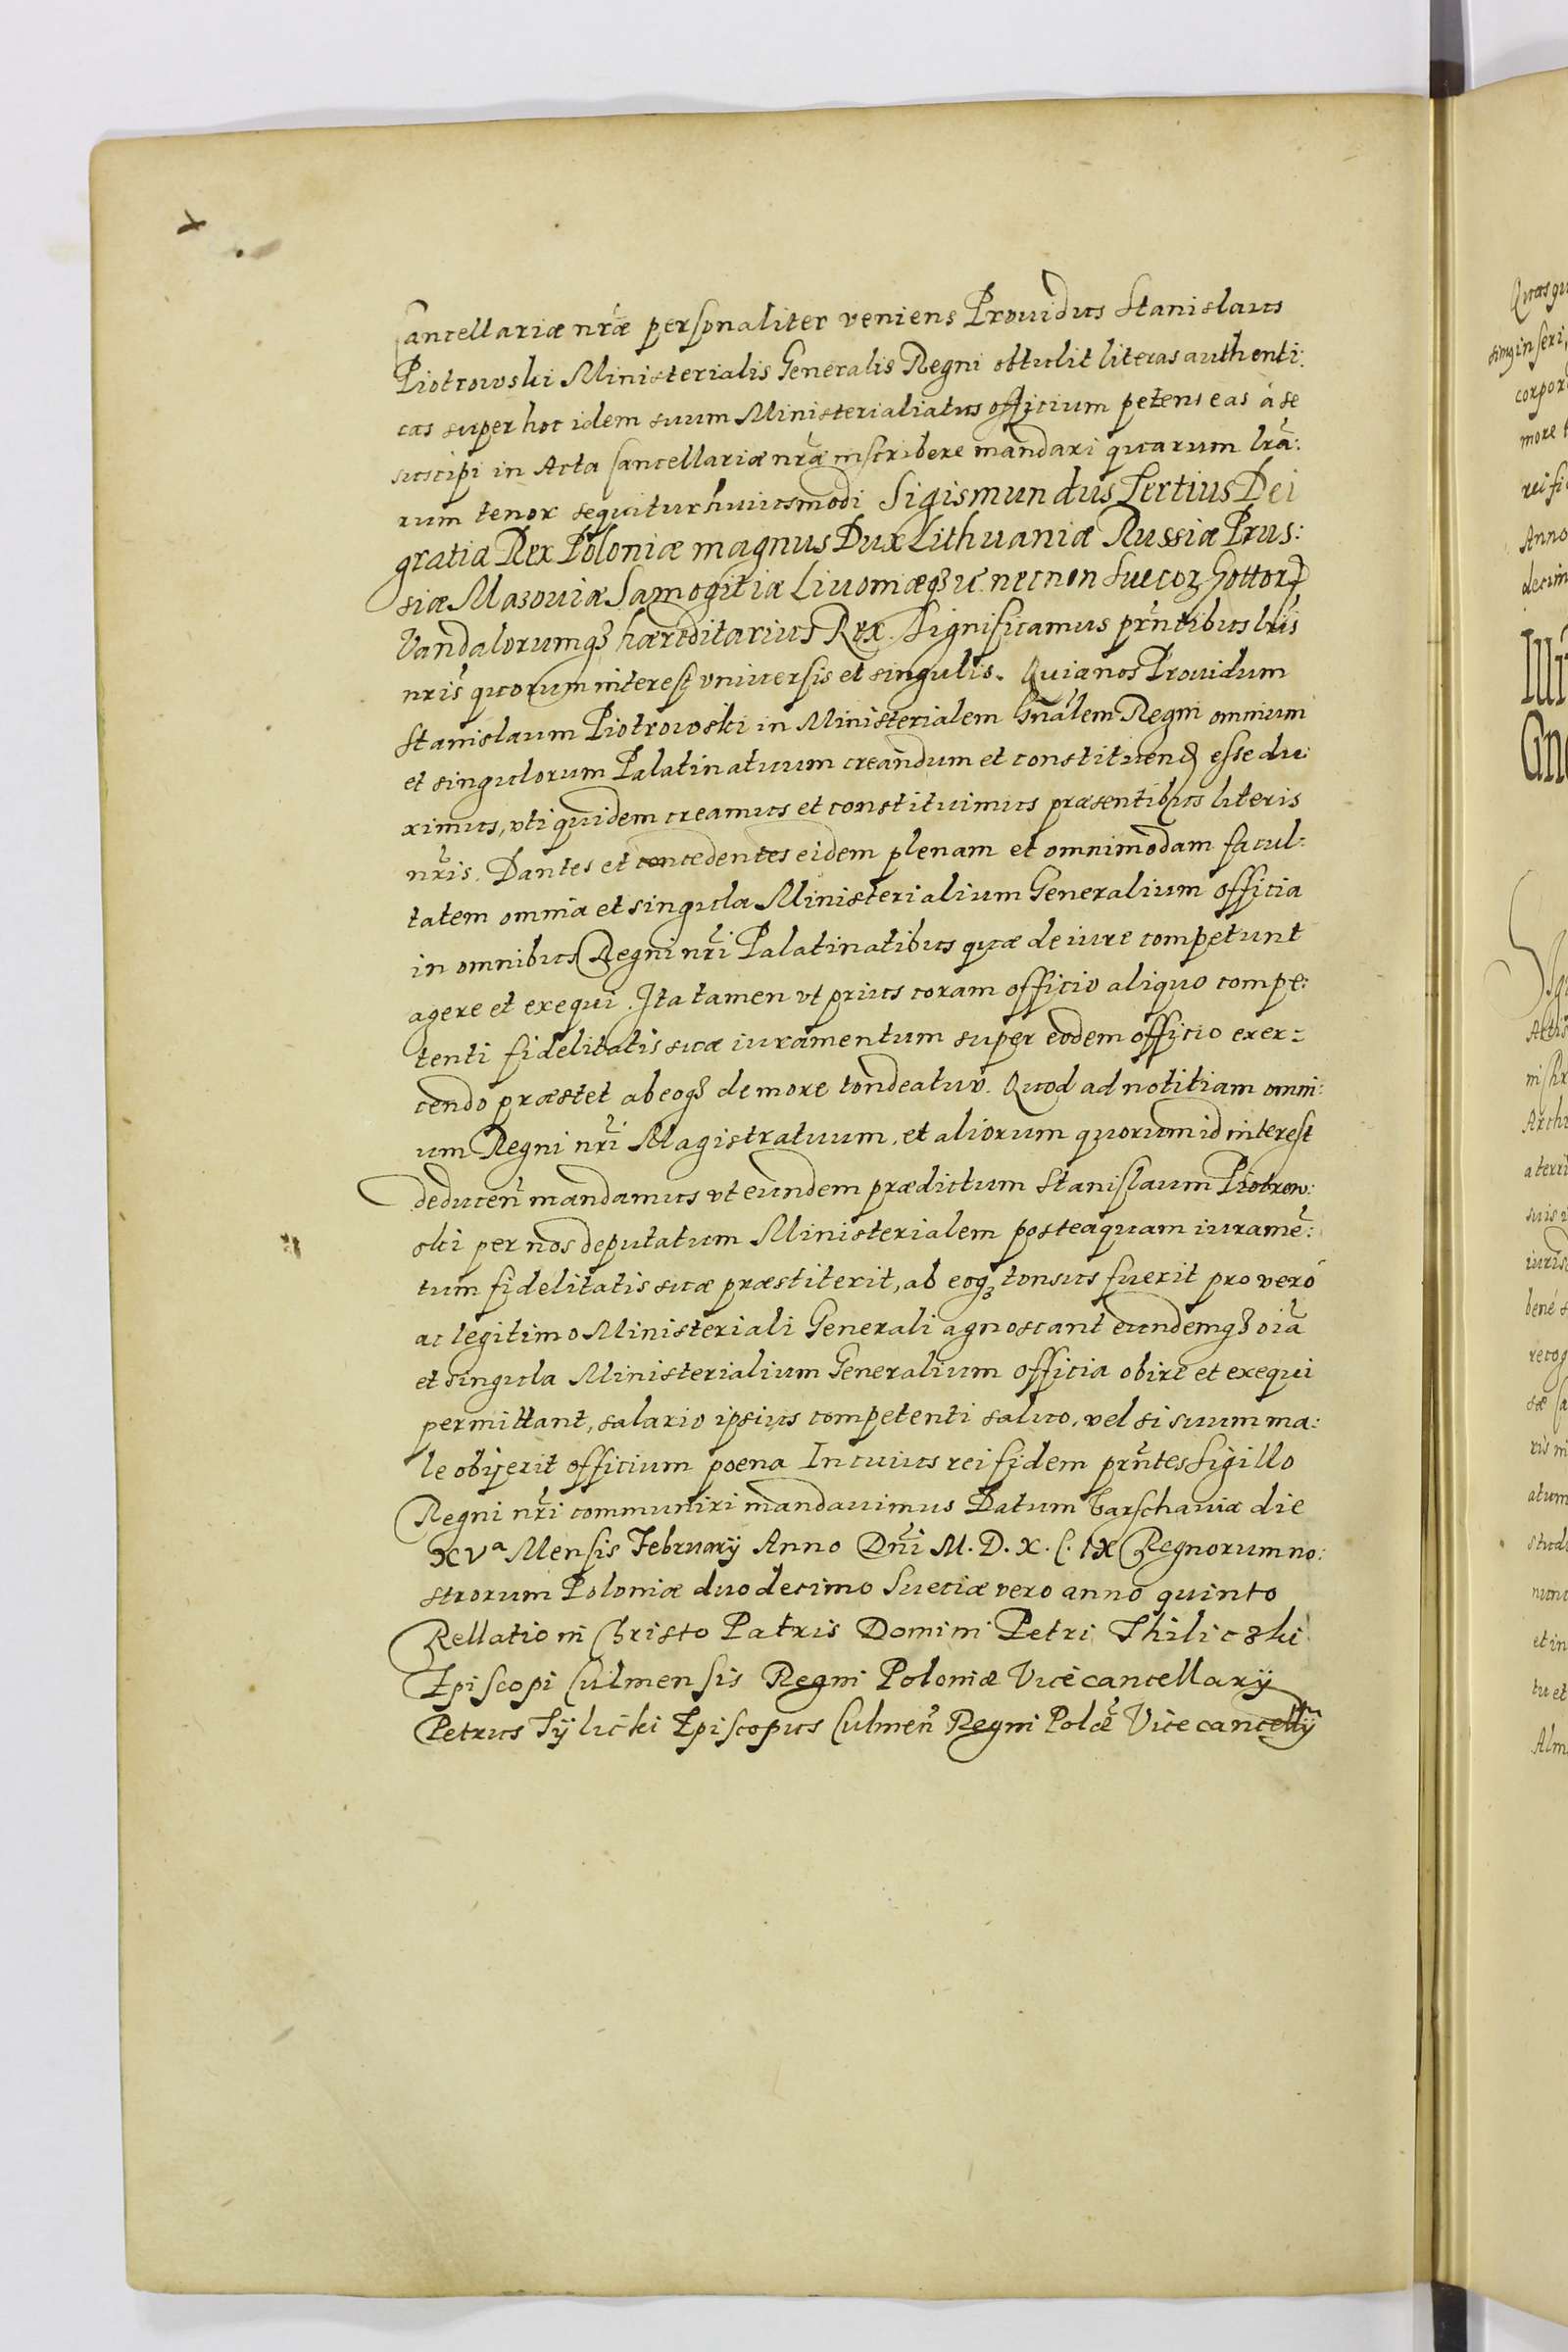 Cancellariæ nr̃æ personaliter veniens Prouidus Stanislaus
Piotrowski Ministerialis Generalis Regni obtulit literas authenti:
cas super hoc idem suum Ministerialiatus officium petens eas à se
suscipi in Acta Cancellariæ nr̃æ inscribere mandari quarum lr̃a:
rum tenor sequitur huiusmodi Sigismundus Tertius Dei
gratia Rex Poloniæ magnus Dux Lithuaniæ Russiæ Prus:
siæ Mazouiæ Samogitiæ Liuoniæqꝫ necnon Suecoꝝ Gottoꝝ
Vandalorumqꝫ hæreditarius Rex. Significamus pr̃ntibus lr̃is
nr̃is quorum interest vniuersis et singulis. Quia nos Prouidum
Stanislaum Piotrowski in Ministerialem Gnãlem Regni omnium
et singulorum Palatinatuum creandum et constituend esse du:
ximus, vti quidem creamus et constituimus præsentibus literis
nr̃is. Dantes et concedentes eidem plenam et omnimodam facul:
tatem omnia et singula Ministerialium Generalium officia
in omnibus Regni nr̃i Palatinatibus quæ de iure competunt
agere et exequi. Ita tamen vt prius coram officio aliquo compe:
tenti fidelitatis suæ iuramentum super eodem officio exer=
cendo præstet ab eoqꝫ de more tondeatur. Quod ad notitiam omni:
um Regni nr̃i Magistratuum, et aliorum quorum id interest
deducen̄ mandamus vt eundem prædictum Stanislaum Piotrow:
ski per nos deputatum Ministerialem posteaquam iuramẽ:
tum fidelitatis suæ præstiterit, ab eoqꝫ tonsus fuerit pro vero
ac legitimo Ministeriali Generali agnoscant eundemqꝫ oĩa
et singula Ministerialium Generalium officia obire et exequi
permittant, salario ipsius competenti saluo, vel si suum ma:
le obijerit officium poena In cuius rei fidem pr̃ntes Sigillo
Regni nr̃i communiri mandauimus Datum Varschauiæ die
XVª Mensis Februarÿ Anno Dñi M.D.X.C.IX Regnorum no:
strorum Poloniæ duodecimo Sueciæ vero anno quinto
Rellatio in Christo Patris Domini Petri Thiliczki
Episcopi Culmensis Regni Poloniæ Vicecancellarÿ
Petrus Tÿlicki Episcopus Culmen̄ Regni Polæ̃ Vicecancellr̃ÿ